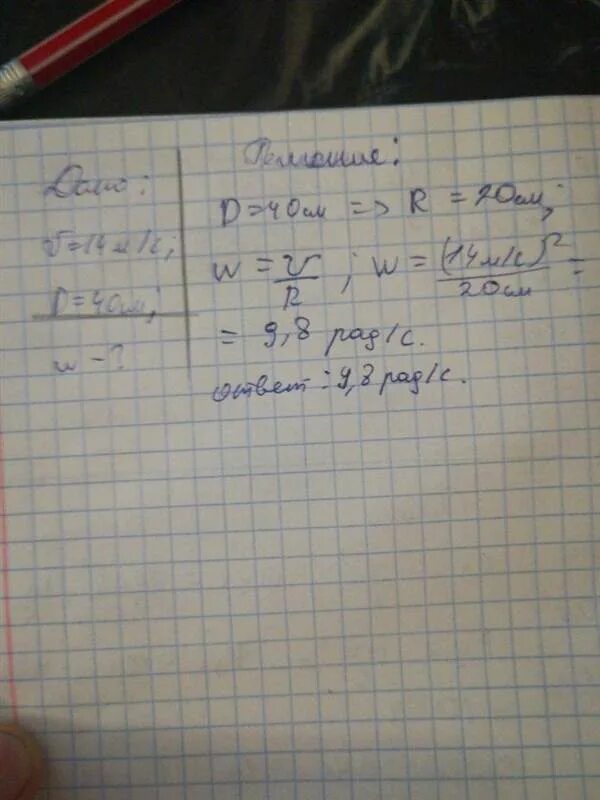 Дано:
v=14м/с;
D=40см;
w-?
Решение:
D=40см => R = 20см;
w = v/R ; w = (14м/с)²/20см =
= 9,8 рад/с.
ответ: 9,8 рад/с.